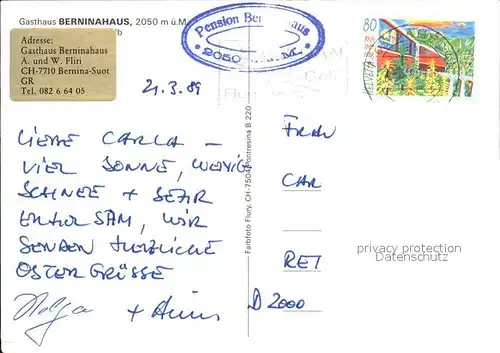 Gasthaus BERNINAHAUS, 2050 m ü.M.
Adresse:
Gasthaus Berninahaus
A. und W. Fliri
CH-7710 Bernina-Suot
GR
Tel. 082 6 64 05
Pension Ber haus
2050 M.
80
HELVETIA
21.3.89
LIEBE CARLA –
VIEL SONNE, WENIG
SCHNEE + SEHR
ERHOLSAM, WIR
SENDEN HERZLICHE
OSTERGRÜSSE
Helga +
Farbfoto Flury, CH-7504 Pontresina B 220
FRAU
CAR
REI
D 2000
privacy protection
Datenschutz